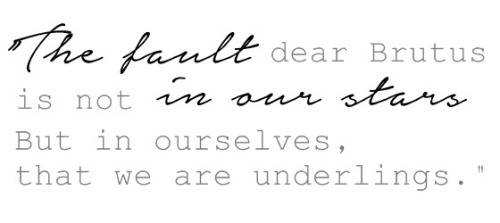 "The fault dear Brutus
is not in our stars
But in ourselves,
that we are underlings."